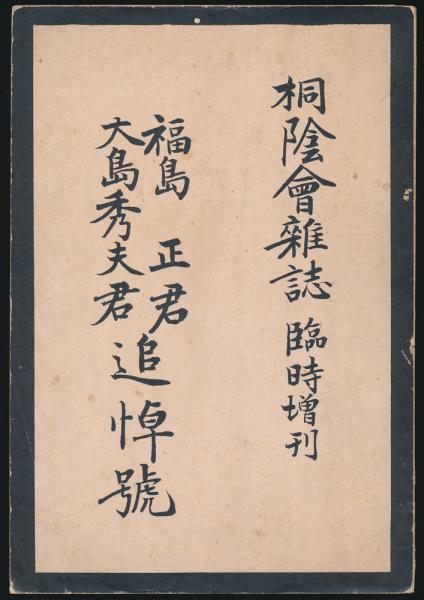 桐陰會雜誌 臨時增刊
福島 正君
大島秀夫君
追悼號